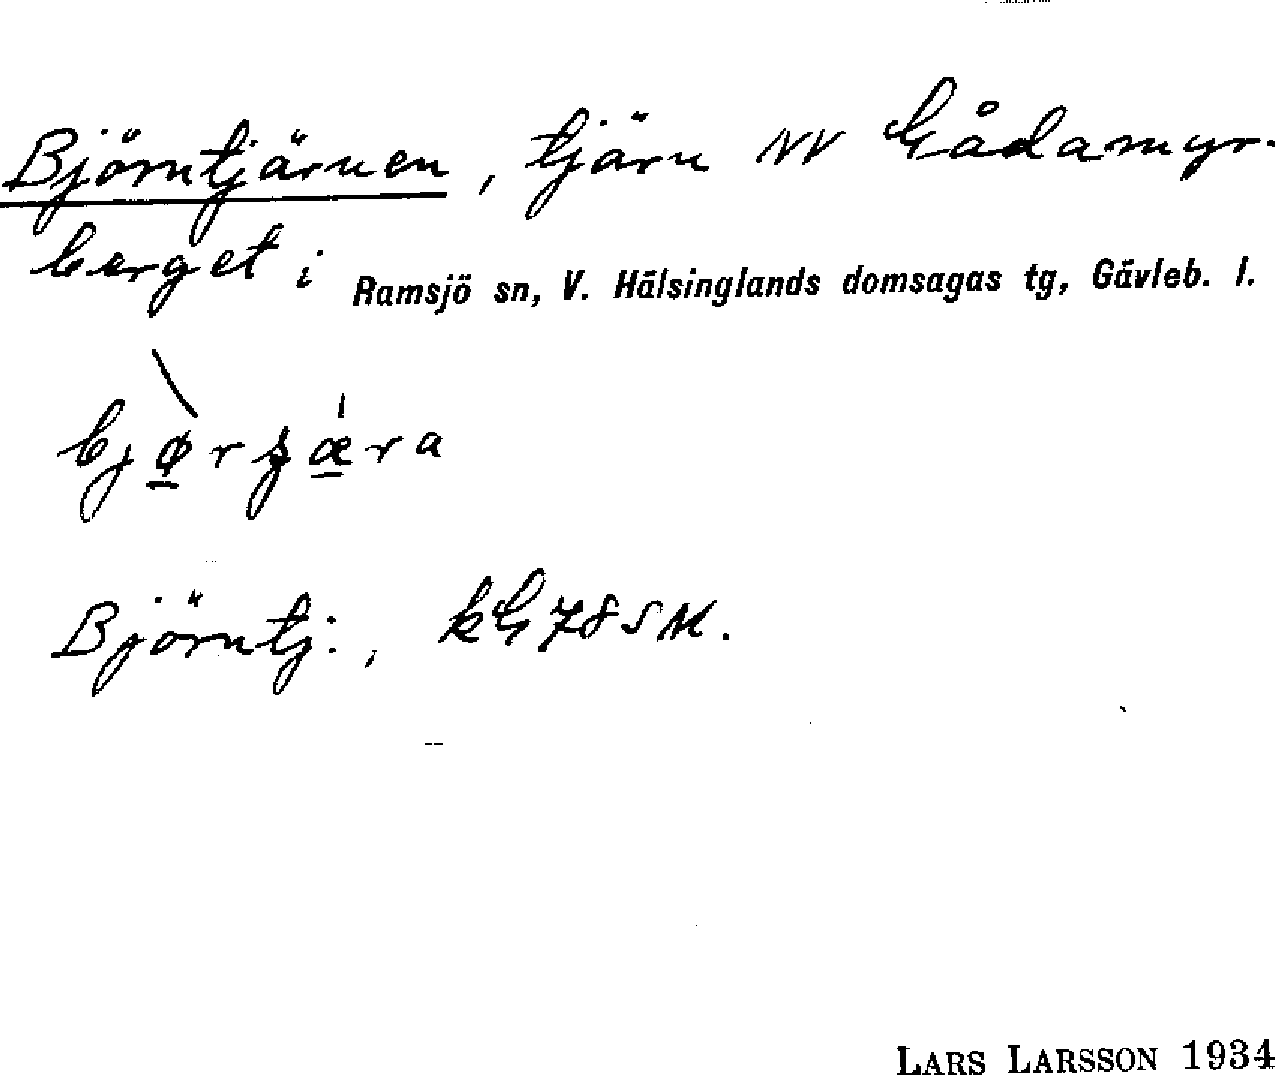 Björntjärnen, tjärn NV Gådamyr-
berget i Ramsjö sn, V. Hälsinglands domsagas tg, Gävleb. l.
Björntj:, kG78SM.
LARS LARSSON 1934